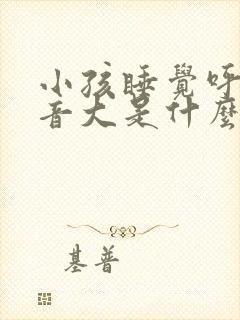 小孩睡覺呼
音大是什麼
基普